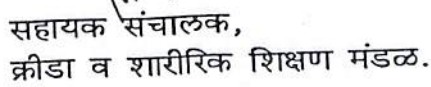 सहायक संचालक,
क्रीडा व शारीरिक शिक्षण मंडळ.